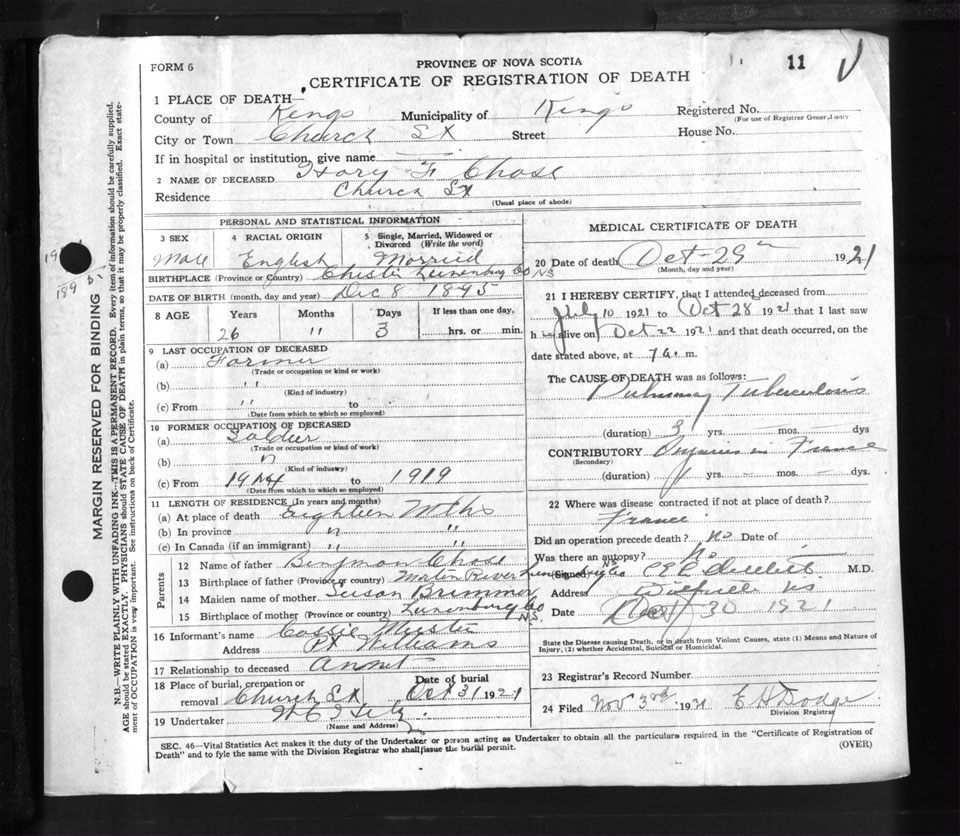 FORM 6
PROVINCE OF NOVA SCOTIA
11
CERTIFICATE OF REGISTRATION OF DEATH
1 PLACE OF DEATH—
County of Kings Municipality of Kings Registered No.
(For use of Registrar General only
City or Town Church St Street House No.
If in hospital or institution, give name —
2 NAME OF DECEASED F Chase
Residence Church St
(Usual place of abode)
PERSONAL AND STATISTICAL INFORMATION
3 SEX 4 RACIAL ORIGIN 5 Single, Married, Widowed or Divorced (Write the word)
Male English Married
BIRTHPLACE (Province or Country) Chester Lunenburg Co NS
DATE OF BIRTH (month, day and year) Dec 8 1895
8 AGE Years Months Days If less than one day,
26 " 3 hrs. or min.
9 LAST OCCUPATION OF DECEASED
(a) Farmer
(Trade or occupation or kind or work)
(b) "
(Kind of industry)
(c) From " to
(Date from which to which so employed)
10 FORMER OCCUPATION OF DECEASED
(a) Soldier
(Trade or occupation or kind of work)
(b) "
(Kind of industry)
(c) From 1914 to 1919
(Date from which to which so employed)
11 LENGTH OF RESIDENCE (in Years and months)
(a) At place of death Eighteen Mths
(b) In province " "
(c) In Canada (if an immigrant) " "
Parents
12 Name of father Chase
13 Birthplace of father (Province or country) Martin River Lunenburg Co NS
14 Maiden name of mother Susan Brimmer
15 Birthplace of mother (Province or Country) Lunenburg Co NS.
16 Informant's name
Address Pt Williams
17 Relationship to deceased
18 Place of burial, cremation or removal Church St Date of burial Oct 31 1921
19 Undertaker
(Name and Address)
MEDICAL CERTIFICATE OF DEATH
20 Date of death Oct-29th 1921
(Month, day and year)
21 I HEREBY CERTIFY, that I attended deceased from
July 10 1921 to Oct 28 1921 that I last saw
h alive on Oct 22 1921 and that death occurred, on
date stated above, at 7 a. m.
The CAUSE OF DEATH was as follows:
Pulmonary Tuberculosis
(duration) 3 yrs. — mos. — dys
CONTRIBUTORY in France
(Secondary)
(duration) 1 yrs. — mos. — dys.
22 Where was disease contracted if not at place of death?
France
Did an operation precede death? No Date of
Was there an autopsy? No
(Signed) M.D.
Address Wolfville NS
Date Oct 30 1921
State the Disease causing Death, or in death from Violent Causes, state (1) Means and Nature of Injury, (2) whether Accidental, Suicidal or Homicidal.
23 Registrar's Record Number
24 Filed Nov 3rd 1921 E H Dodge
Division Registrar
SEC. 46—Vital Statistics Act makes it the duty of the Undertaker or person acting as Undertaker to obtain all the particulars required in the "Certificate of Registration of
Death" and to fyle the same with the Division Registrar who shall issue the burial permit.
(OVER)
MARGIN RESERVED FOR BINDING
N.B.—WRITE PLAINLY WITH UNFADING INK—THIS IS A PERMANENT RECORD. Every item of information should be carefully supplied.
AGE should be stated EXACTLY. PHYSICIANS should STATE CAUSE OF DEATH in plain terms, so that it may be properly classified. Exact state-
ment of OCCUPATION is very important. See instructions on back of Certificate.